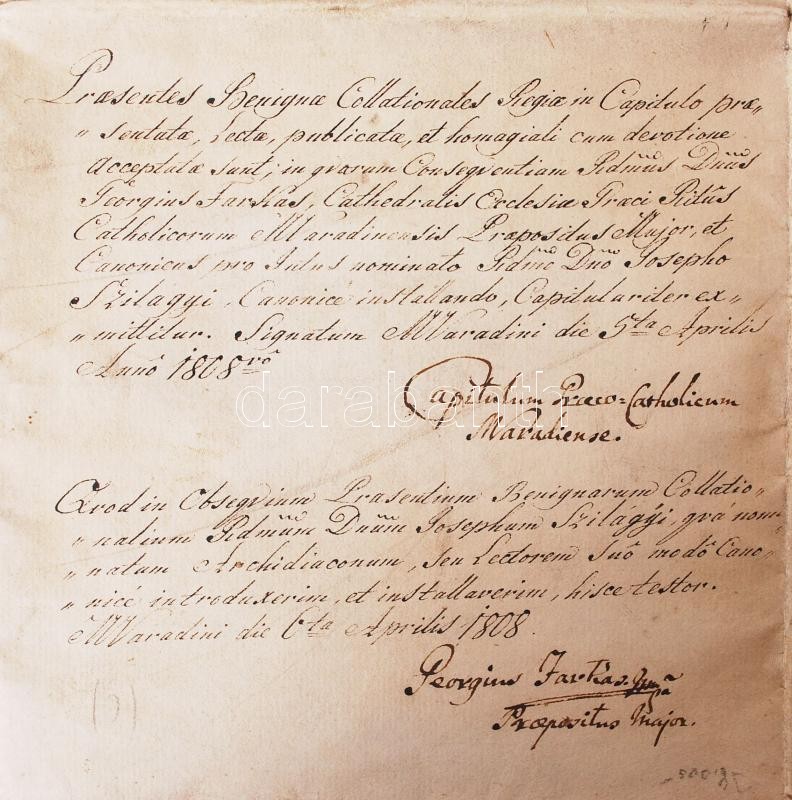 Præsentes Benignæ Collationales Regiæ in Capitulo præ„
„sentatæ, Lectæ, publicatæ, et homagiali cum devotione
acceptatæ sunt; in qvarum Conseqventiam Rdmũs Dnũs
Georgius Farkas, Cathedralis Ecclesiæ Græci Ritũs
Catholicorum MVaradinensis Præpositus Major, et
Canonicus pro Intus nominato Rdmõ Dnõ Josepho
Szilágyi, Canonice installando, Capitulariter ex„
„mittitur. Signatum MVaradini die 5ta Aprilis
Annõ 1808võ
Capitulum Græco=Catholicum
MVaradiense.
darabanth
Qvod in Obseqvium Præsentium Benignarum Collatio„
„nalium Rdmũm Dnũm Josephum Szilágÿi, qvá nomi„
„natum Archidiaconum, seu Lectorem Suõ modõ Cano„
„nice introduxerim, et installaverim, hisce testor.
MVaradini die 6ta Aprilis 1808.
Georgius Farkas mpa
Præpositus Major.